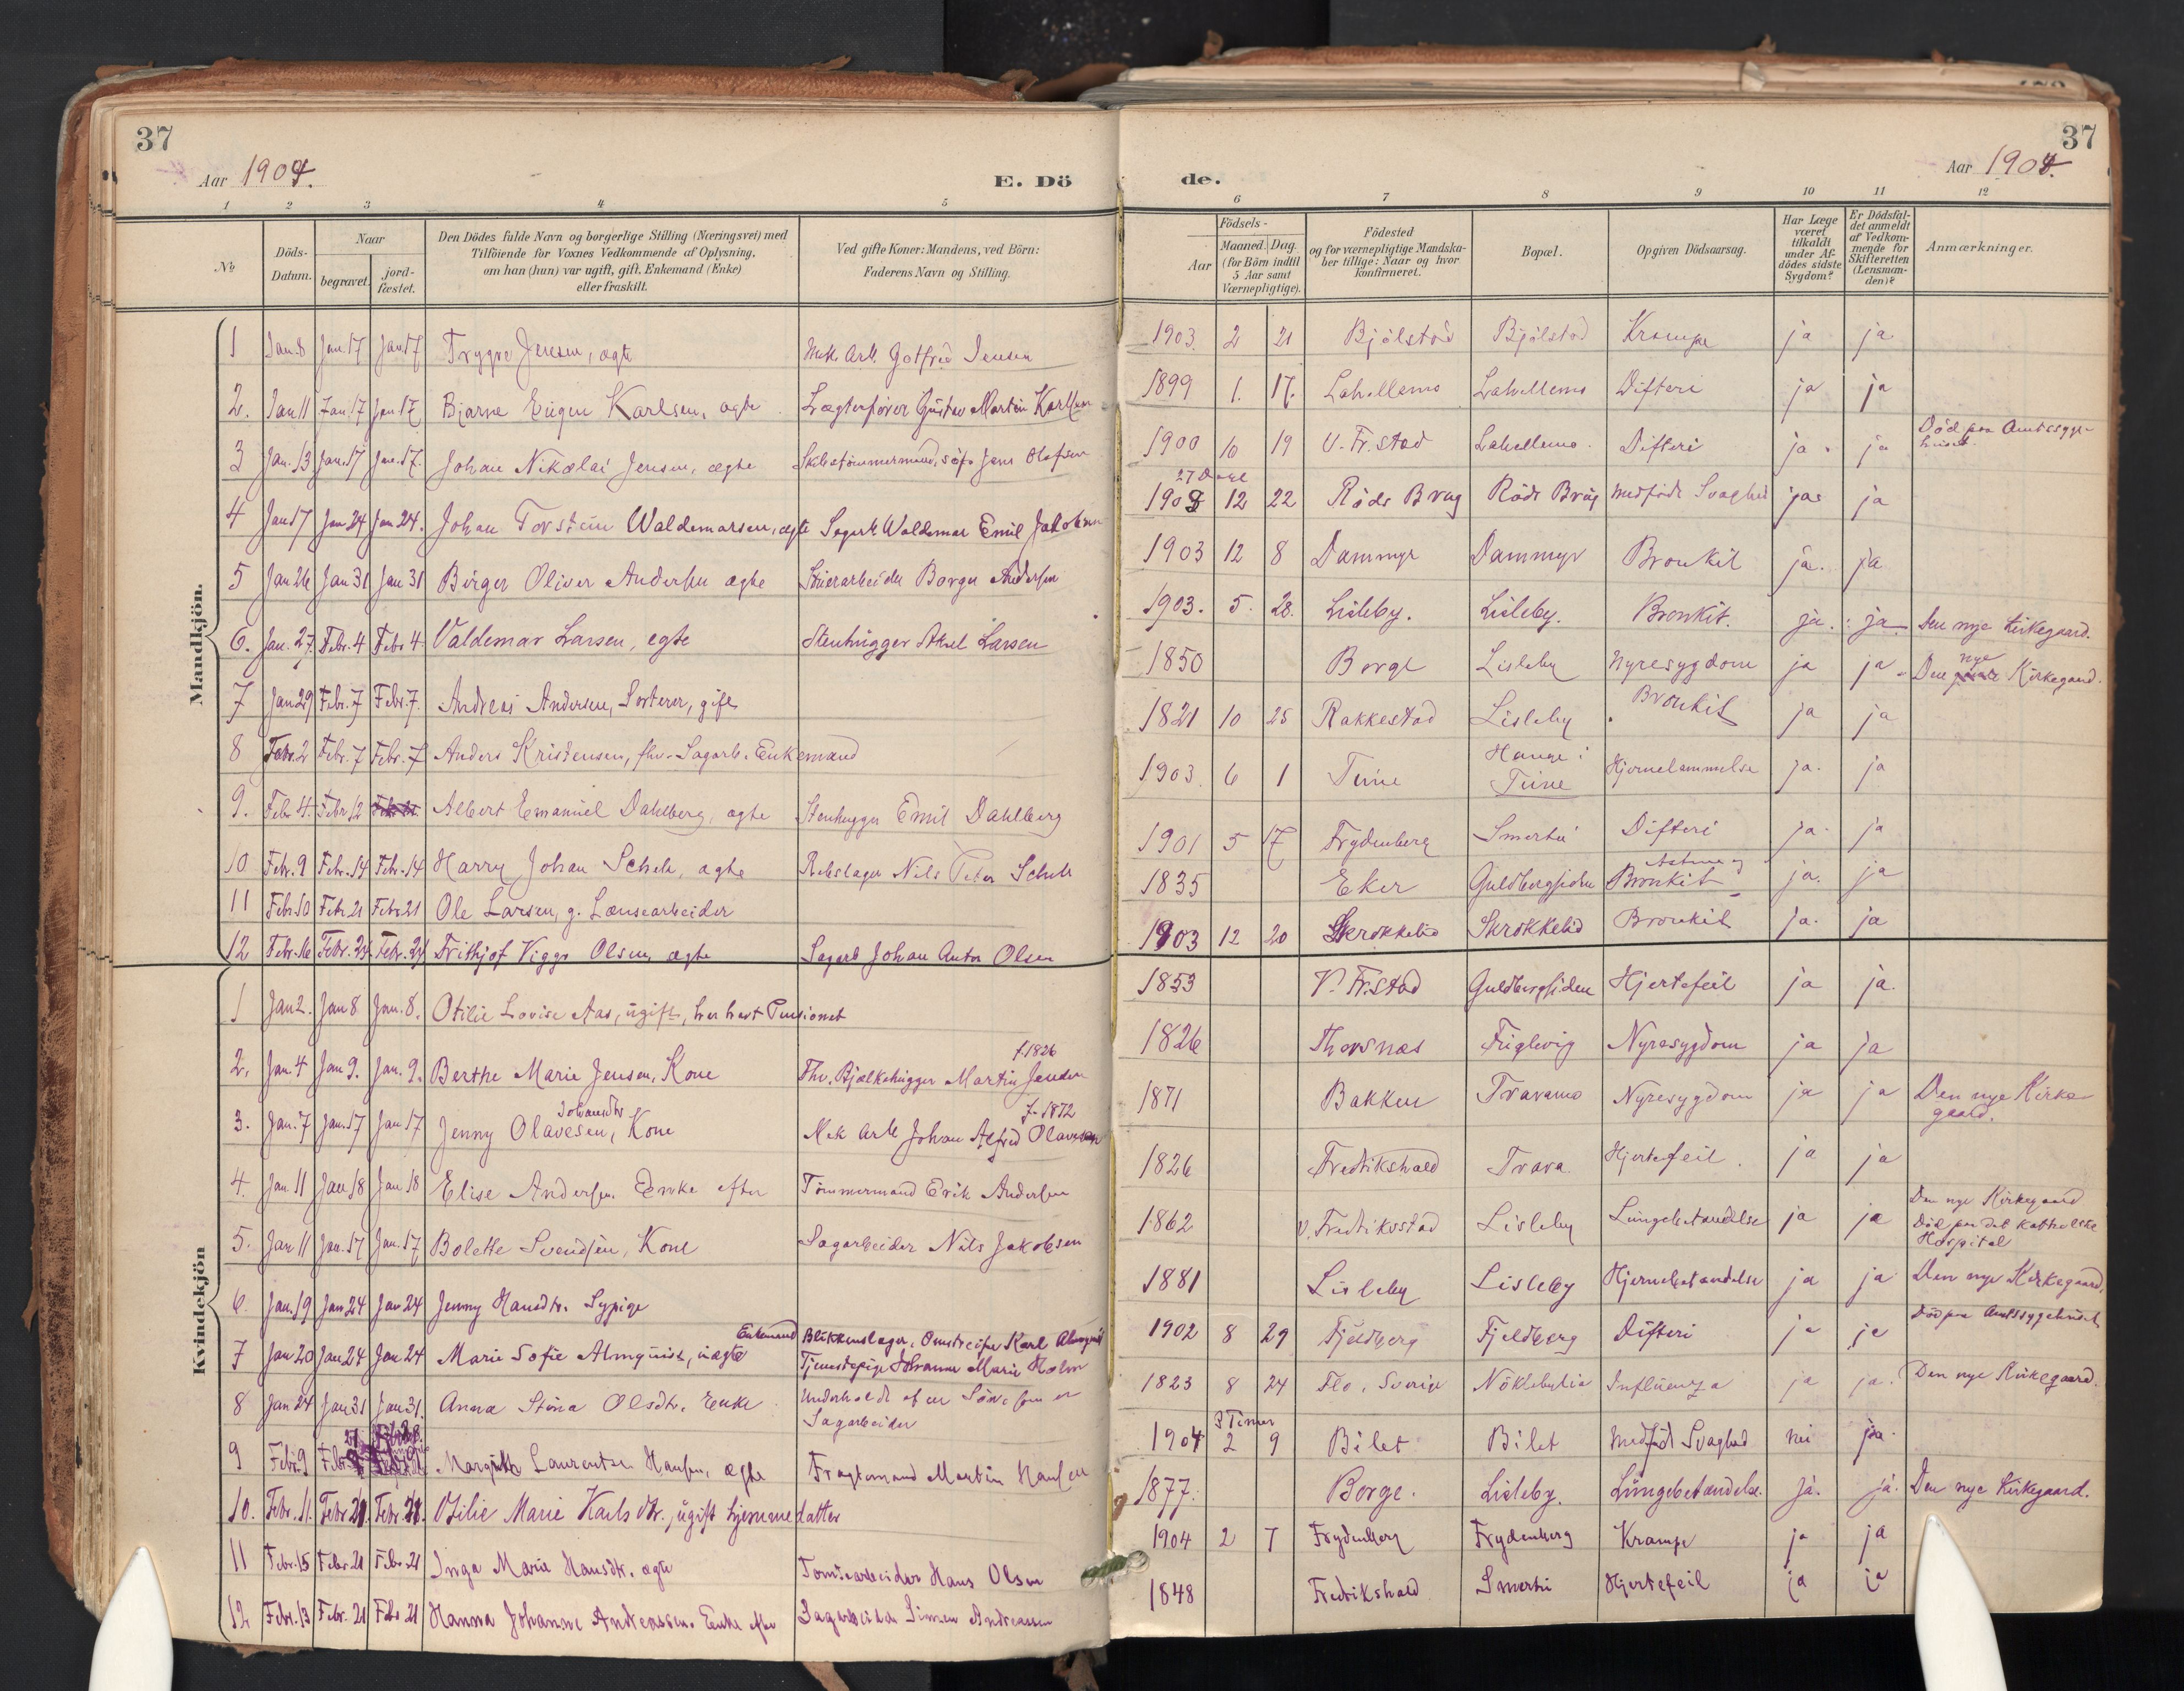 37
Aar 1904.
E. Dö
1 2 3 4 5
No
Döds-
Datum.
Naar
begravet.
jord-
fæstet.
Den Dödes fulde Navn og borgerlige Stilling (Næringsvei) med
Tilföiende for Voxnes Vedkommende af Oplysning,
om han (hun) var ugift, gift, Enkemand (Enke)
eller fraskilt.
Ved gifte Koner: Mandens, ved Börn:
Faderens Navn og Stilling.
Mandkjön.
1 Jan. 8 Jan. 17 Jan. 17 Trygve Jensen, ægte Mek. Arb. Gotfred Jensen
2. Jan 11 Jan. 17 Jan 17 Bjarne Eugen Karlsen, ægte Lægterfører Gustav Martin Karlsen
3 Jan. 13 Jan. 17 Jan. 17. Johan Nikolai Jensen, ægte Skibstømmermand, Jens Olafsen
4 Jan 17 Jan 24 Jan 24. Johan Torstein Waldemarsen, ægte Sagarb. Waldemar Emil Jakobsen
5 Jan 26 Jan 31 Jan 31 Birger Oliver Andersen ægte Borge Andersen
6. Jan. 27. Febr. 4 Febr 4 Valdemar Larsen, egte Stenhugger Aksel Larsen
7 Jan 29 Febr. 7 Febr. 7. Andreas Andersen, Sorterer, gift
8 Febr. 2 Febr. 7 Febr. 7 Anders Kristensen, fhv. Sagarb. Enkemand
9. Febr 4. Febr 12 Albert Emanuel Dahlberg, ægte Stenhugger Emil Dahlberg
10 Febr. 9 Febr. 14 Febr. 14 Harry Johan Schek, ægte Rebslager Nils Peter Schek
11 Febr. 10 Febr 21 Febr 21 Ole Larsen, g. Lænsearbeider
12 Febr. 16 Febr. 24 Febr. 24 Frithjof Viggo Olsen, ægte Sagarb Johan Anton Olsen
Kvindekjön
1 Jan 2. Jan 8 Jan. 8. Otilie Lovise Aas, ugift, har havt Pensionat
2. Jan. 4 Jan 9. Jan. 9. Berthe Marie Jensen, Kone Fhv. Bjælkehugger Martin Jensen
f. 1826
3. Jan. 7 Jan. 17 Jan 17 Jenny Olavesen, Kone Mek Arb Johan Alfred Olavesen
Johansdtr
f. 1872
4. Jan. 11 Jan 18 Jan 18 Elise Andersen. Enke efter Tømmermand Erik Andersen
5. Jan 11 Jan. 17 Jan. 17 Bolette Svendsen, Kone Sagarbeider Nils Jakobsen
6. Jan. 19 Jan 24 Jan 24 Jenny Hansdtr. Sypige
7 Jan 20 Jan 24 Jan 24 Marie Sofie Almquist, uægte
Enkemand Blikkenslager, Omstreifer Karl Almquist
Tjenestepige Johanne Marie Holm
8 Jan 24 Jan 31 Jan 31. Anna Stina Olsdtr. Enke Underholdt af en Søn, som er
Sagarbeider
9 Febr. 9 Margith Laurentse Hansen, ægte Fragtemand Martin Hansen
10. Febr. 11. Febr 21. Febr. 21. Otilie Marie Karlsdtr. ugift hjemmedatter
11 Febr. 15 Febr 21 Febr 21 Inga Marie Hansdtr. ægte Tomtearbeider Hans Olsen
12 Febr. 13 Febr. 21 Febr 21 Hanna Johanne Andreassen. Enke efter Sagarbeider Simen Andreassen
37
de.
Aar 1904.
6 7 8 9 10 11 12
Födsels-
Aar
Maaned. Dag.
(for Börn indtil
5 Aar samt
Værnepligtige).
Födested
og for værnepligtige Mandska-
ber tillige: Naar og hvor
konfirmeret.
Bopæl.
Opgiven Dödsaarsag.
Har Læge
været
tilkaldt
under Af-
dödes sidste
Sygdom?
Er Dödsfal-
det anmeldt
af Vedkom-
mende for
Skifteretten
(Lensman-
den)?
Anmærkninger.
1903 2 21 Bjølstad Bjølstad Krampe ja ja
1899 1. 17. Lahellemo Lahellemo Difteri ja ja
1900 10 19 V. Fr.stad Lahellemo. Difteri ja ja Død paa Amtssyge-
huset.
27 Dage
1903 12 22 Røds Brug Røds Brug Medfødt Svaghed ja ja
1903 12 8 Dammyr Dammyr Bronkit ja. ja
1903. 5. 28. Lisleby. Lisleby. Bronkit. ja. ja Den nye Kirkegaard.
1850 Borge Lisleby Nyresygdom ja ja Den nye Kirkegaard.
1821 10 25 Rakkestad Lisleby Bronkit ja ja
1903 6 1 Tune Hauge i
Tune Hjernelammelse ja. ja
1901 5 17 Frydenberg Smertu Difteri ja ja
1835 Eker Guldbergsiden Astma og
Bronkit ja. ja
1903 12 20 Skrokkelid Skrokkelid Bronkit ja. ja
1853 V. Fr.stad Guldbergsiden Hjertefeil ja ja.
1826 Thorsnæs Fuglevig Nyresygdom ja ja
1871 Bakken Traramo Nyresygdom ja ja Den nye Kirke-
gaard.
1826 Fredrikshald Trara Hjertefeil. ja ja
1862 V. Fredrikstad Lisleby Lungebetændelse ja ja Den nye Kirkegaard
Død paa det katholske
Hospital
1881 Lisleby Lisleby Hjernebetændelse ja ja Den nye Kirkegaard,
1902 8 29 Fjeldberg Fjeldberg Difteri ja ja Død paa Amtssygehuset
1823 8 24 Flo, Sverige Nøkleby Influenza ja ja. Den nye Kirkegaard.
3 Timer
1904 2 9 Bilet Bilet Medfødt Svaghed nei ja.
1877. Borge. Lisleby. Lungebetændelse. Ja. ja. Den nye Kirkegaard.
1904 2 7 Frydenberg Frydenberg Krampe ja ja
1848 Fredrikshald Smertu Hjertefeil ja ja